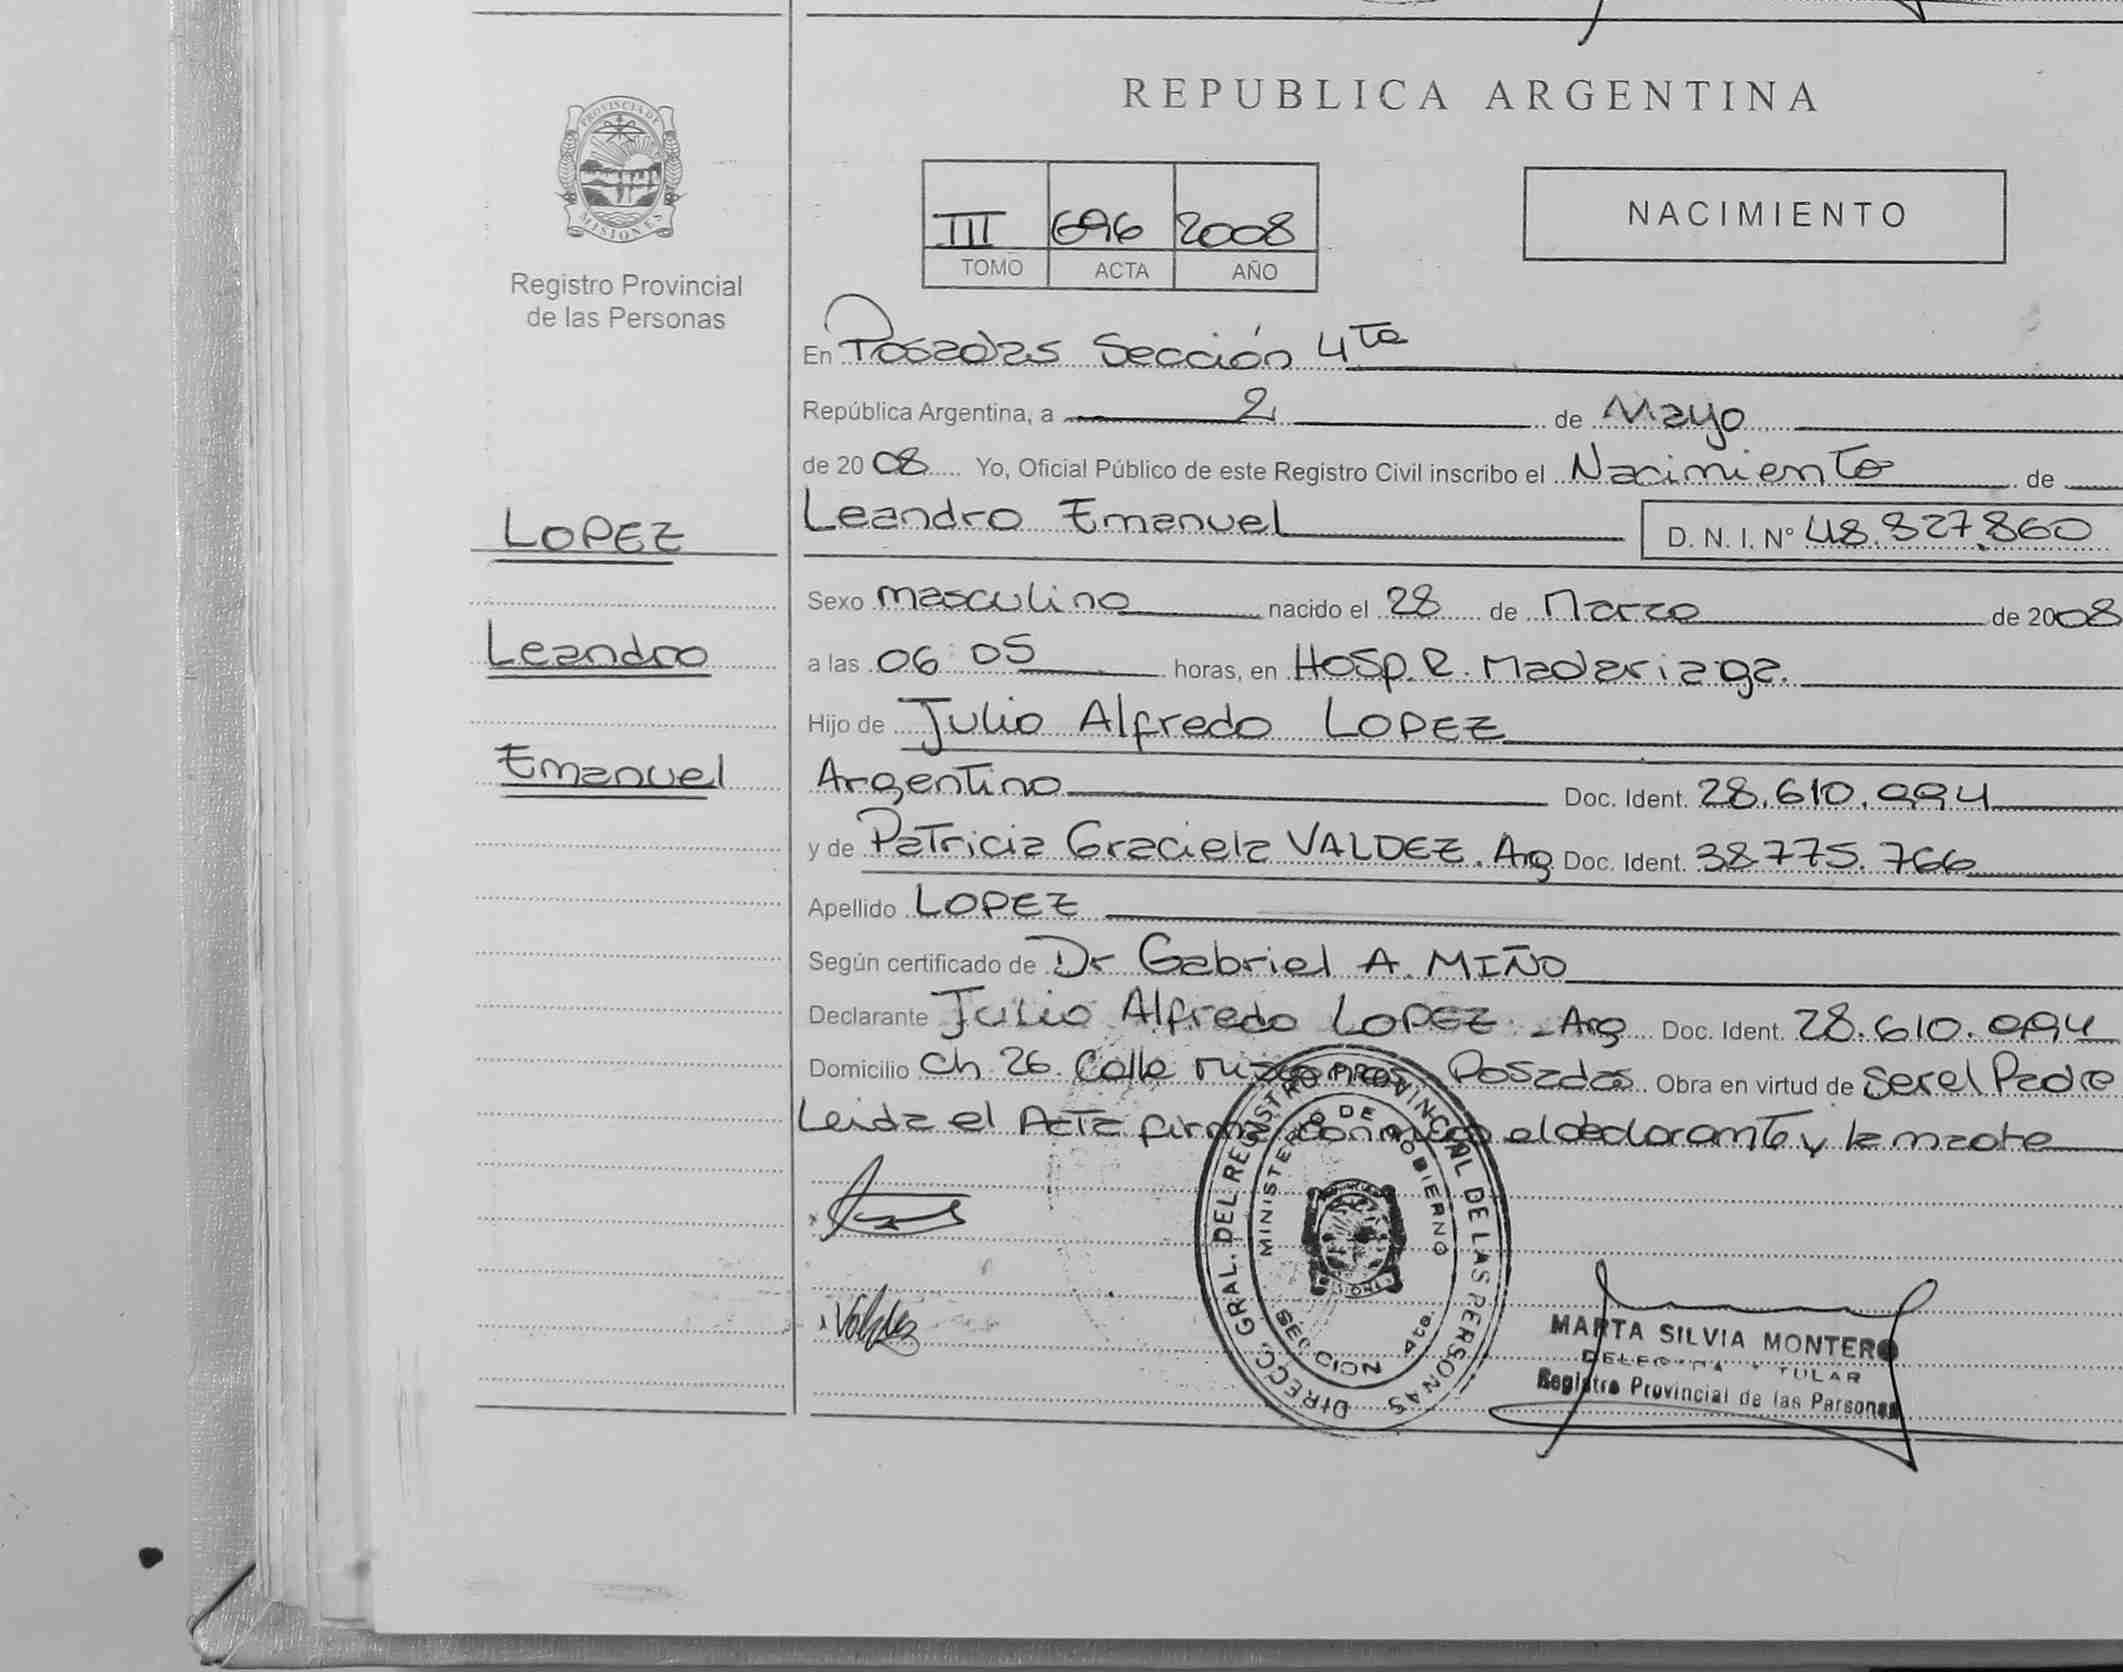 REPUBLICA ARGENTINA
PROVINCIA DE MISIONES
Registro Provincial
de las Personas
III 696 2008
TOMO ACTA AÑO
NACIMIENTO
En Posadas Sección 4ta
República Argentina, a 2 de Mayo
de 2008 Yo, Oficial Público de este Registro Civil inscribo el Nacimiento de
LOPEZ
Leandro Emanuel D. N. I. Nº 48.827.860
Sexo masculino nacido el 28 de Marzo de 2008
Leandro
a las 06 05 horas, en Hosp. R. Madariaga.
Hijo de Julio Alfredo LOPEZ
Emanuel
Argentino Doc. Ident. 28.610.994
y de Patricia Graciela VALDEZ. Arg Doc. Ident. 38775.766
Apellido LOPEZ
Según certificado de Dr Gabriel A. MIÑO
Declarante Julio Alfredo LOPEZ - Arg Doc. Ident. 28.610.994
Domicilio Ch 26 Calle Posadas Obra en virtud de ser el Padre
Leida el Acta firma conmigo el declarante y la madre
DIRECC. GRAL. DEL REGISTRO PROVINCIAL DE LAS PERSONAS
MINISTERIO DE GOBIERNO
SECCION 4ta
Valdez
MARTA SILVIA MONTERO
Registro Provincial de las Personas